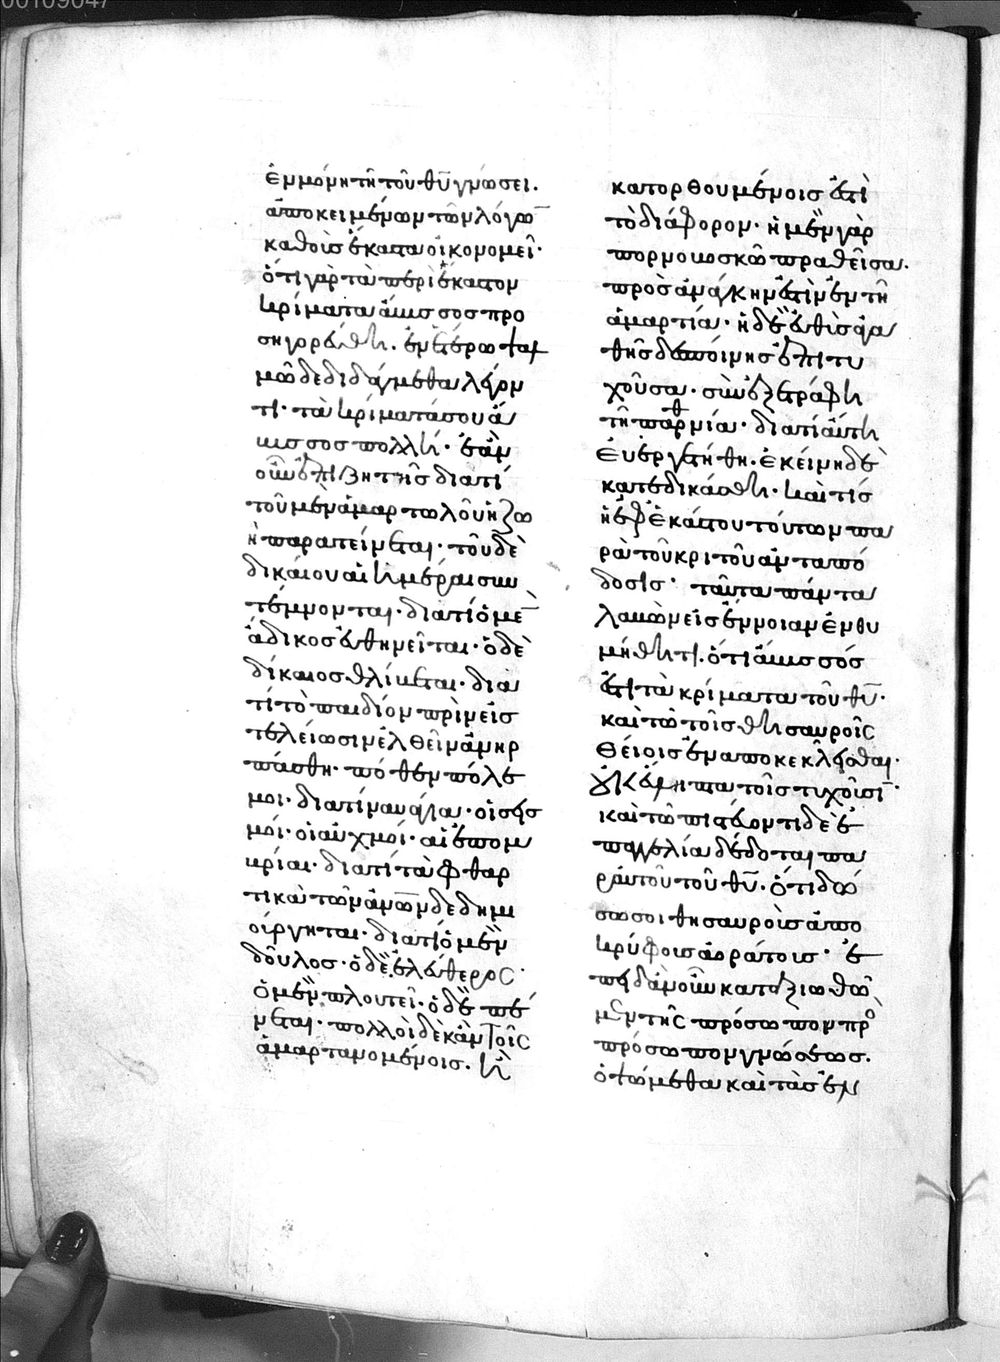 00109047
ἐν μόνη τῆ τοῦ θῦ γνώσει.
ἀποκειμένων τῶν λόγω̅
καθ' οὓς ἕκαστα οἰκονομεῖ·
ὅτι γὰρ τὰ περὶ ἕκαστον
κρίματα ἄβυσσος προ
σηγορεύθη. ἐν ἑτέρω ψαλ
μῶ δεδιδάγμεθα λέγον
τι· τὰ κρίματά σου ἄ
βυσσος πολλή· ἐὰν
οὖν ἐπιζητῆς διατί
τοῦ μὲν ἁμαρτωλοῦ ἡ ζω
ὴ παρατείνεται· τοῦ δὲ
δικαίου αἱ ἡμέραι συν
τέμνονται· διατί ὁ μὲ̅
ἄδικος εὐθηνεῖται· ὁ δὲ
δίκαιος θλίβεται· δια
τί τὸ παιδίον πρὶν εἰς
τελείωσιν ἐλθεῖν ἀνηρ
πάσθη· πόθεν πόλε
μοι· διατί ναυάγια· οἱ σεισ
μοί· οἱ αὐχμοί· αἱ ἐπομ
βρίαι· διατί τὰ φθαρ
τικὰ τῶν ἀν̅ω̅ν δεδημι
ούργηται· διατί ὁ μὲν
δοῦλος· ὁ δὲ ἐλεύθερος·
ὁ μὲν πλουτεῖ· ὁ δὲ πέ
νεται· πολλὴ δὲ κἀν τοῖς
ἁμαρτανομένοις. κὰ̀
κατορθουμένοις ἐστὶ
τὸ διάφορον· ἡ μὲν γὰρ
πορνοβοσκῶ πραθεῖσα.
πρὸς ἀνάγκην ἐστὶν ἐν τῆ
ἁμαρτία· ἡ δὲ εὐθὺς ἀγα
θῆς δεσποίνης ἐπιτυ
χοῦσα· συνεξετράφη
τῆ παρθενία· διατί αὕτη
εὐεργετήθη. ἐκείνη δὲ
κατεδικάσθη· καὶ τίς
ἡ ἐφ' ἑκάστου τούτων πα
ρὰ τοῦ κριτοῦ ἀνταπό
δοσις· ταῦτα πάντα
λαμβάνεις ἔννοιαν ἐνθυ
μήθητι. ὅτι ἄβυσσός
ἐστι τὰ κρίματα τοῦ θῦ·
καὶ τῶ τοῖς θησαυροῖς
θείοις ἐναποκεκλεῖσθαι.
οὐκ εὔληπτα τοῖς τυχοῦσι̅·
καὶ τῶ πιστεύοντι δὲ ἐ
παγγελία δέδοται πα
ρ' αὐτοῦ τοῦ θῦ· ὅτι δώ
σω σοι θησαυροὺς ἀπο
κρύφους ἀοράτους· ἐ
πειδὰν οὖν καταξιωθῶ
μεν τῆς πρόσωπον πρὸ
πρόσωπον γνώσεως.
ὀψώμεθα καὶ τὰς ἐν